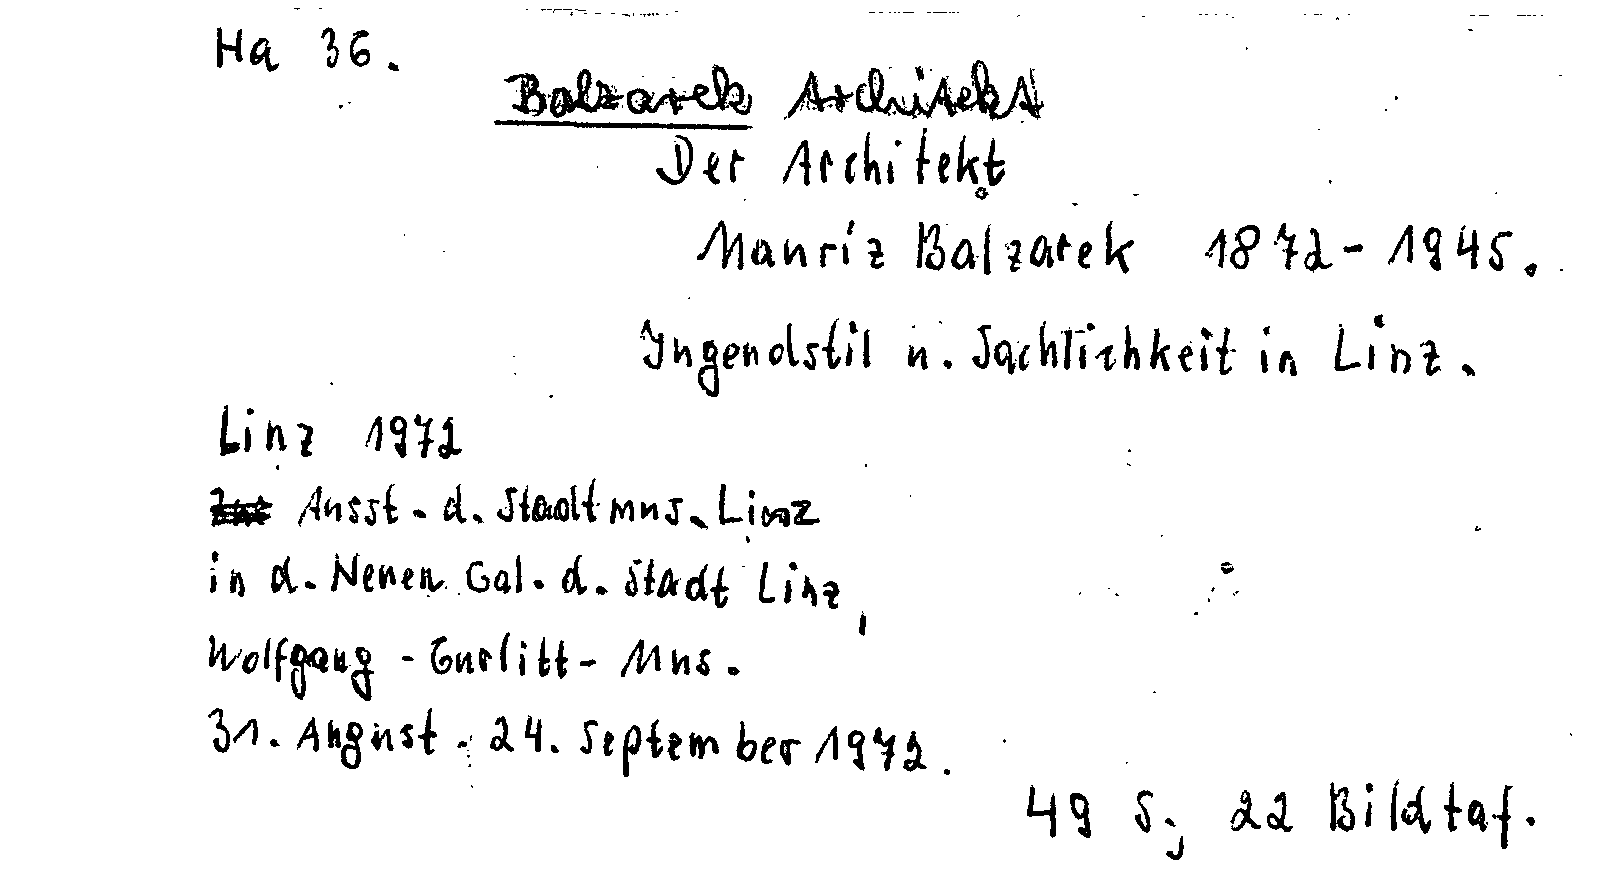 Ha 36.
Balzarek Architekt
Der Architekt
Mauriz Balzarek 1872-1945.
Jugendstil u. Sachlichkeit in Linz.
Linz 1972
Ausst. d. Stadtmus. Linz
in d. Neuen Gal. d. Stadt Linz,
Wolfgang-Gurlitt-Mus.
31. August - 24. September 1972.
49 S., 22 Bildtaf.